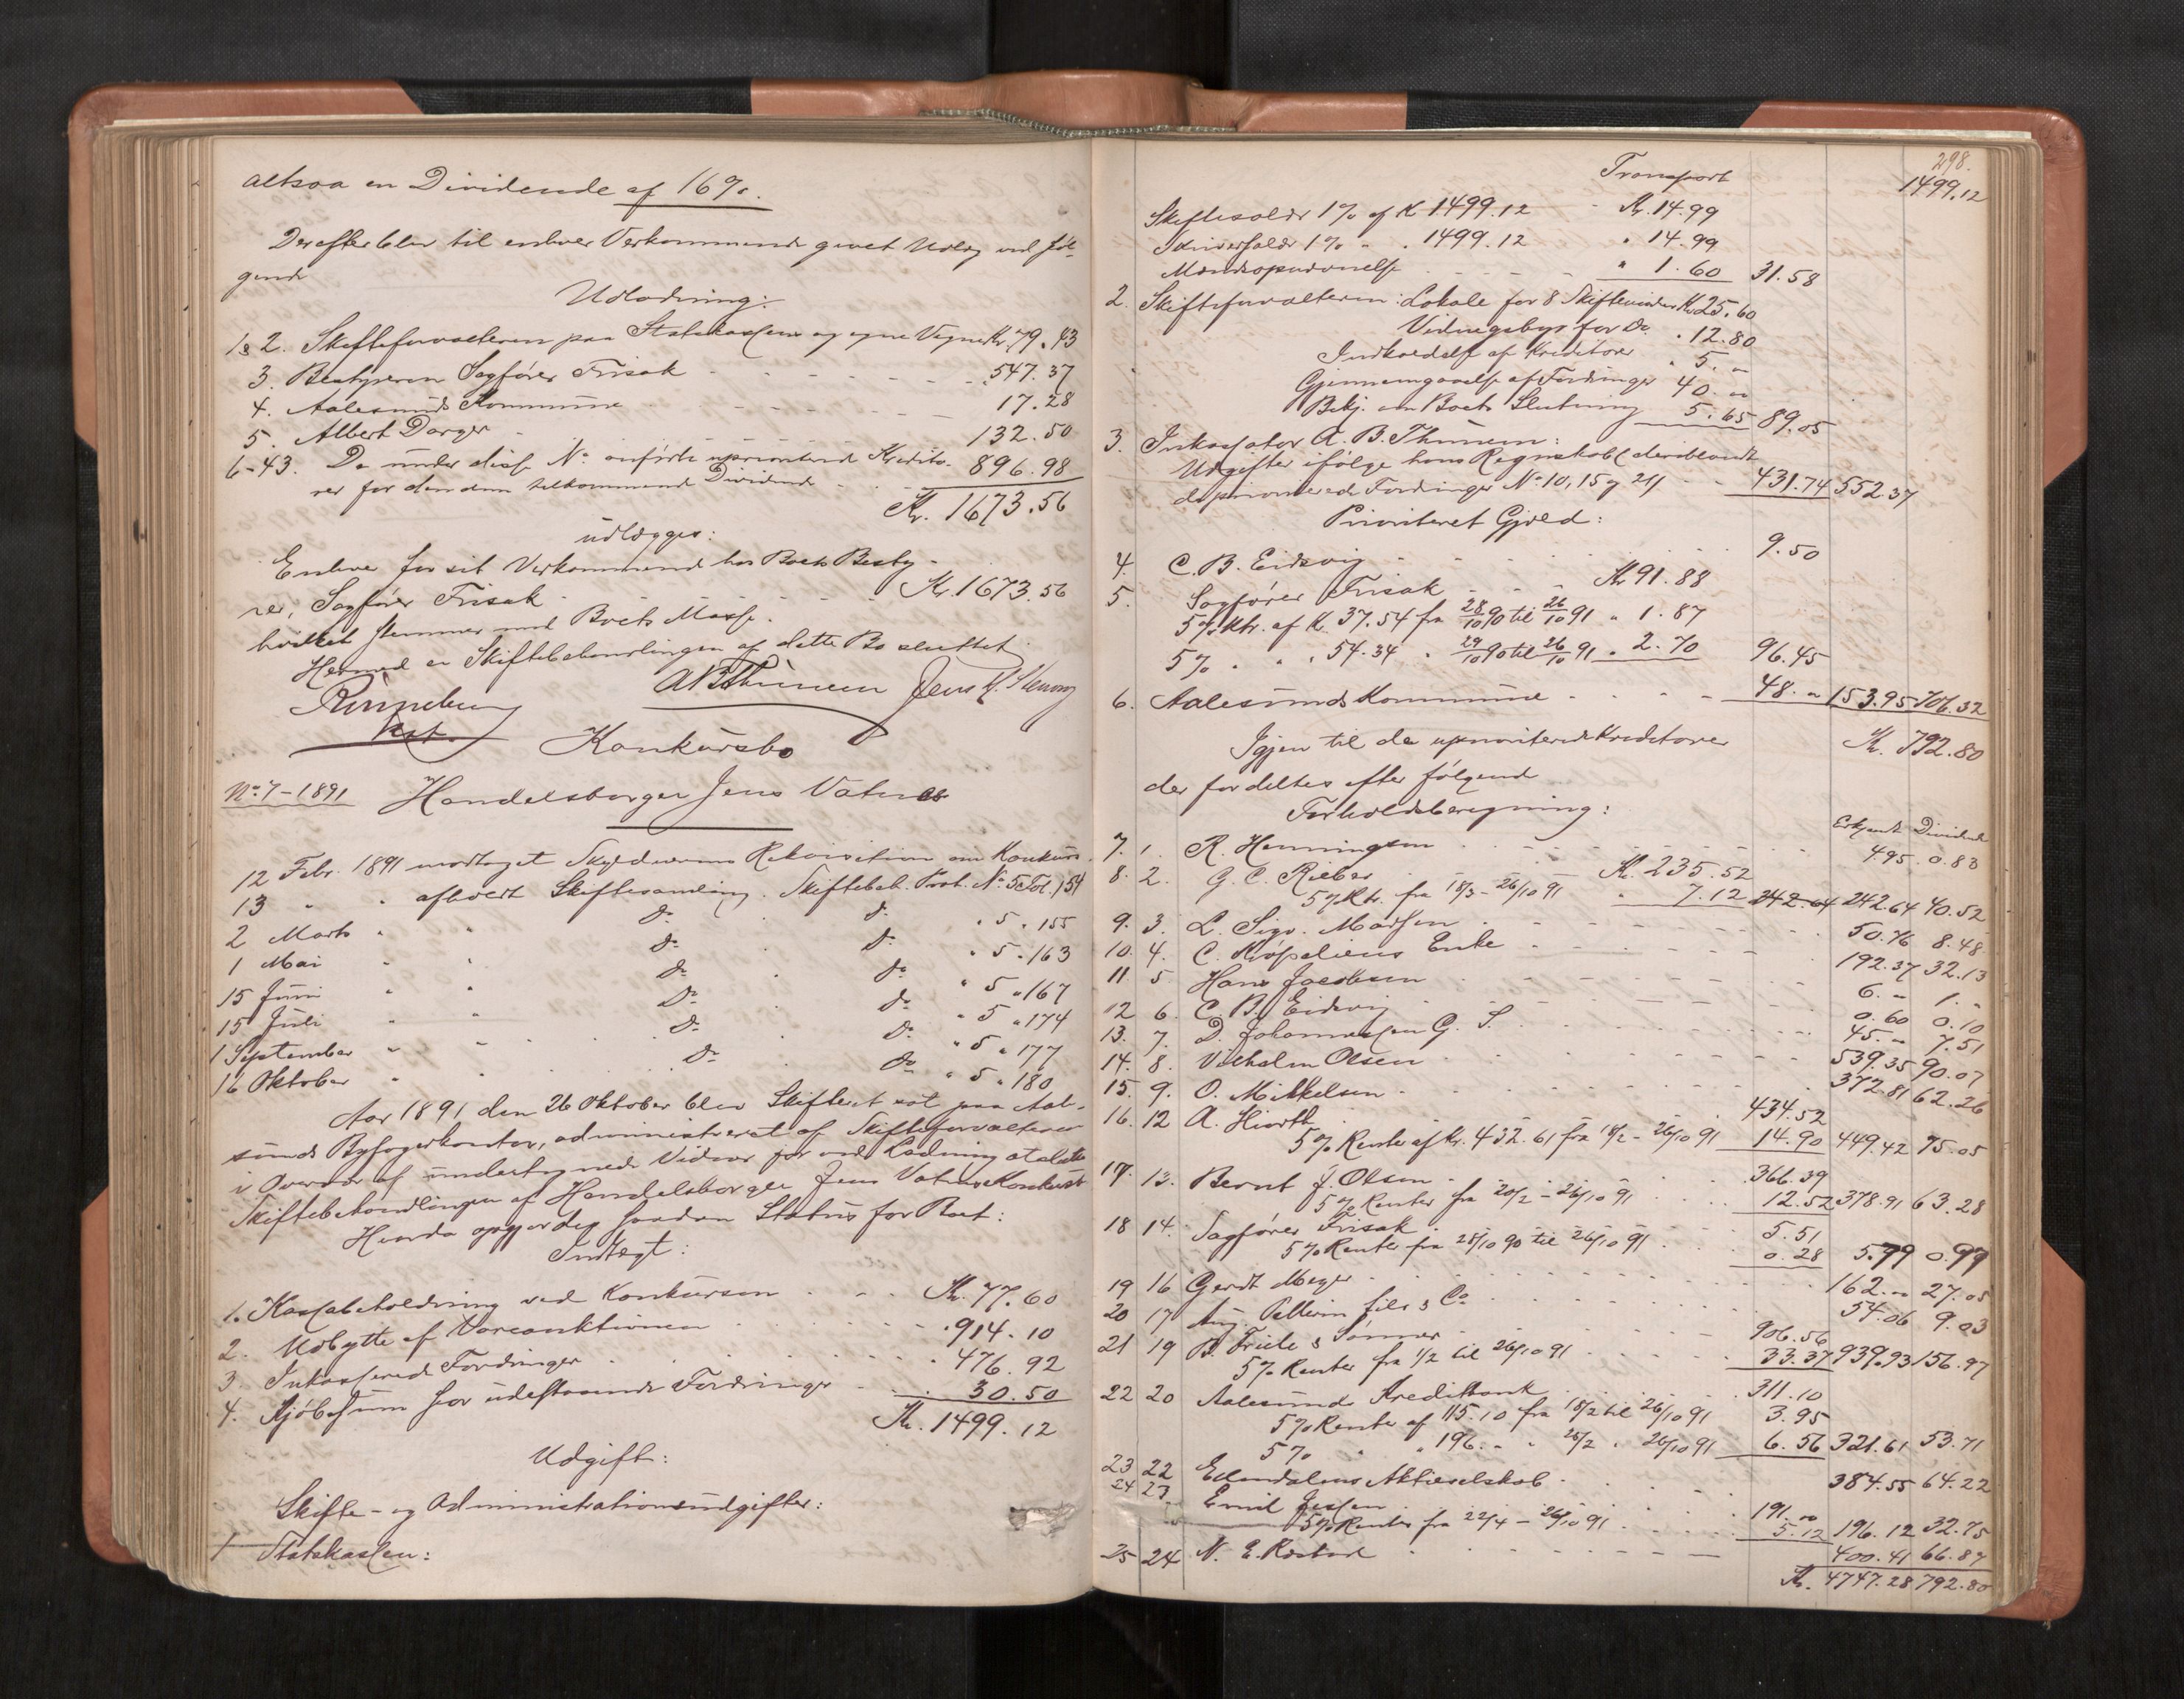 altsaa en Dividende af 16%.
Derefter blev til enhver Vedkommende givet Udlæg ved føl-
gende
Udlodning:
1 & 2. Skifteforvalteren paa Statskassens og egne Vegne Kr. 79.43
3. Bestyreren Sagfører Frisak - - - - - - 547.37
4. Aalesunds Kommune - - - - - 17.28
5. Albert Dorger - 132.50
6-43. De under disse No anførte uprioriterede Kredito- 896.98
rer for den dem tilkommende Dividende
Kr. 1673.56
udlægges:
Enhver for sit Vedkommende hos Boets Besty-
rer, Sagfører Frisak - - - Kr. 1673.56
hvilket stemmer med Boets Masse.
Hermed er Skiftebehandlingen af dette Bo sluttet.
ABThinem Jens K.
Kst.
Konkursbo
No 7-1891 Handelsborger Jens Vatnes
12 Febr. 1891 modtaget Skyldnerens Rekvisition om Konkurs.
13 " " afholdt Skiftesamling. Skiftebeh. Prot. No 5 Fol. 154
2 Marts " " do . do " 5 " 155
1 Mai " " do . do " 5 " 163
15 Juni " " do . do " 5 " 167
15 Juli " " do . do " 5 " 174
1 September " " do . do " 5 " 177
16 Oktober " " do do " 5 " 180
Aar 1891 den 26 Oktober blev Skifteret sat paa Aale-
sunds Byfogedkontor, administreret af Skifteforvalteren
i Overvær af undertegnede Vidner for ved Lodning at slutte
Skiftebehandlingen af Handelsborger Jens Vatnes Konkursbo
Herda opgjordes saadan Status for Boet:
Indtægt:
1. Kassabeholdning ved Konkursen . - - Kr. 77.60
2. Udbytte af Vareauktionen . . . . 914.10
3. Inkasserede Fordringer . . . . 476.92
4. Kjøbesum for udestaaende Fordringer - - 30.50
Kr. 1499.12
Udgift:
Skifte- og Administrationsudgifter:
1 Statskassen:
298.
Transport 1499.12
Skiftesalær 1% af K 1499.12 - Kr. 14.99
Skriversalær 1% " " 1499.12 " 14.99
Mandsopnævnelse - - - - " 1.60 31.58
2. Skifteforvalteren: Lokale for 8 Skiftemøder Kr 25.60
Vidnegebyr for Do. " 12.80
Indkaldelse af Kreditorer " 5. "
Gjennemgaaelse af Fordringer 40. "
Bekj. om Boets Slutning 5.65 89.05
3. Inkassator A. B. Thinem:
Udgifter ifølge hans Regnskab (deriblandt
de priorerede Fordringer No 10, 15 og 21) - - 431.74 552.37
Prioriteret Gjæld:
4. C. B. Eidsvig - - - - 9.50
5. Sagfører Frisak - - - Kr 91.88
5% Rtr. af K. 37.54 fra 28/10 90 til 26/10 91 " 1.87
5% " " " 54.34 " 29/10 90 til 26/10 91 " 2.70 96.45
6. Aalesunds Kommune - - - - 48. " 153.95 706.32
Igjen til de uprioriterede Kreditorer Kr. 792.80
der fordeltes efter følgende
Forholdsberegning:
Erkjendt Dividende
7. 1. R. Henningsen - - - 4.95 0.83
8. 2. G. C. Rieber - - Kr. 235.52
5% Rtr. fra 18/3 - 26/10 91 " 7.12 242.64 242.64 40.52
9. 3. L. Sigv. Madsen - - - 50.76 8.48
10. 4. C. Røpelius Enke - - - 192.37 32.13
11. 5 Hans Jacobsen - - - 6. " 1. "
12 6. C. B. Eidsvig - - - 0.60 0.10
13. 7. D. Johannessen G. S. - - - 45. " 7.51
14. 8. Vilhelm Olsen - - - 539.35 90.07
15. 9. O. Mikkelsen - - - 372.81 62.26
16. 12 A. Hiorth - 434.52
5% Rente af Kr. 432.61 fra 18/2 - 26/10 91 14.90 449.42 75.05
17. 13. Bernt J. Olsen - - - 366.39
5% Renter fra 20/2 - 26/10 91 12.52 378.91 63.28
18 14. Sagfører Frisak - - 5.51
5% Renter fra 28/10 90 til 26/10 91 0.28 5.79 0.97
19 16 Gerdt Meyer - - - 162. " 27.05
20 17 Aug. Pellerin fils & Co - - - 54.06 9.03
21 19 B. Friele & Sønner - - - 906.56
5% Renter fra 1/2 til 26/10 91 33.37 939.93 156.97
22 20 Aalesunds Kreditbank - - 311.10
5% Renter af 115.10 fra 18/2 til 26/10 91 3.95
5% " " 196. " " 25/2 " 26/10 91 6.56 321.61 53.71
23 22 Edendalens Aktieselskab - - - 384.55 64.22
24 23. Emil Jessen - - - 191. "
5% Renter fra 22/4 - 26/10 91 5.12 196.12 32.75
25 24 N. E. Røstad - - - 400.41 66.87
Kr. 4747.28 792.80